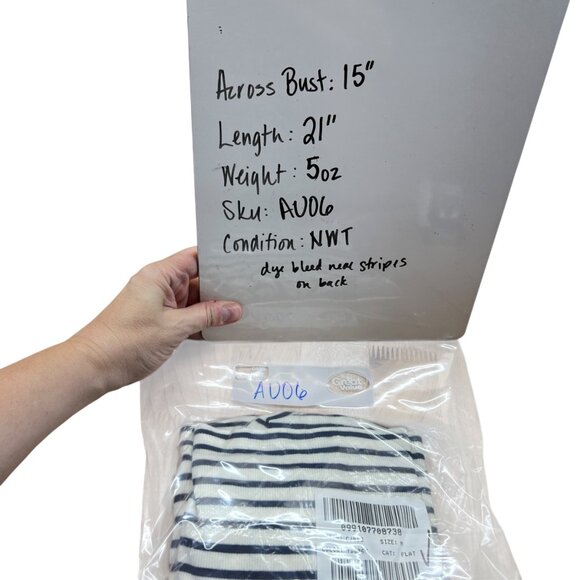 Across Bust: 15"
Length: 21"
Weight: 5oz
Sku: AU06
Condition: NWT
dye bleed near stripes
on back
AU06
Great
Value
099107708738
SIZE:
CAT: FLAT